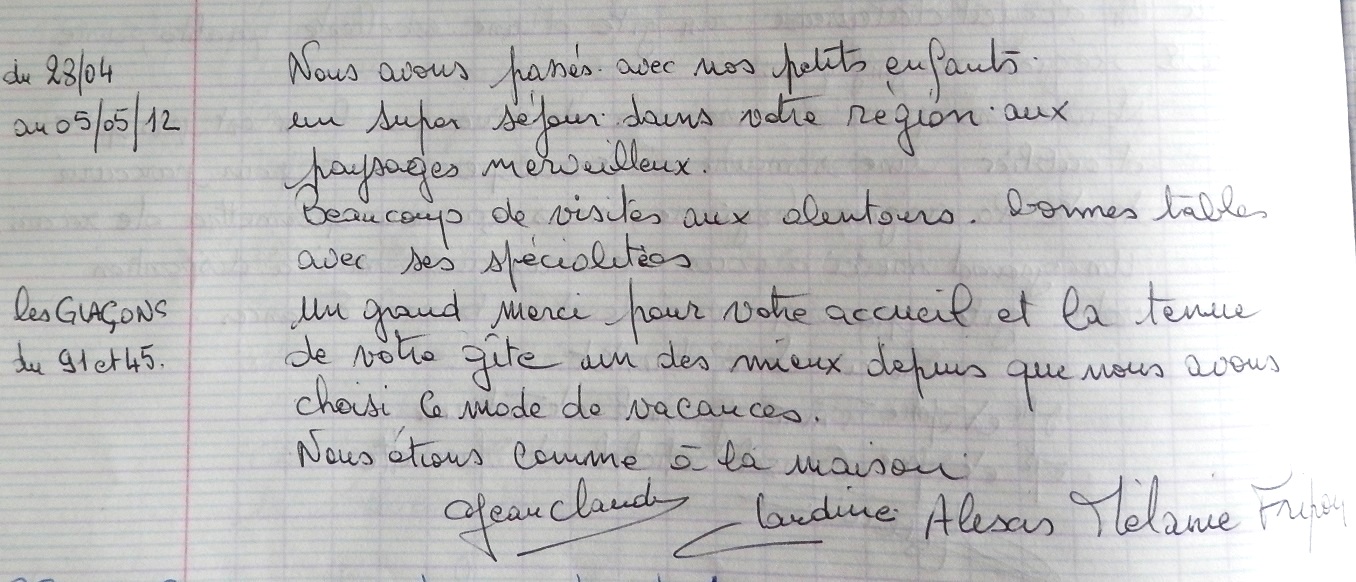 du 28/04
au 05/05/12
Nous avons passés avec nos petits enfants
un super séjour dans votre région aux
paysages merveilleux.
Beaucoup de visites aux alentours. bonnes tables
avec ses spécialitées
les GLAÇONS
du 91 et 45.
Un grand merci pour votre accueil et la tenue
de votre gîte un des mieux depuis que nous avons
choisi ce mode de vacances.
Nous étions comme à la maison
Jean Claude Claudine Alexis Mélanie